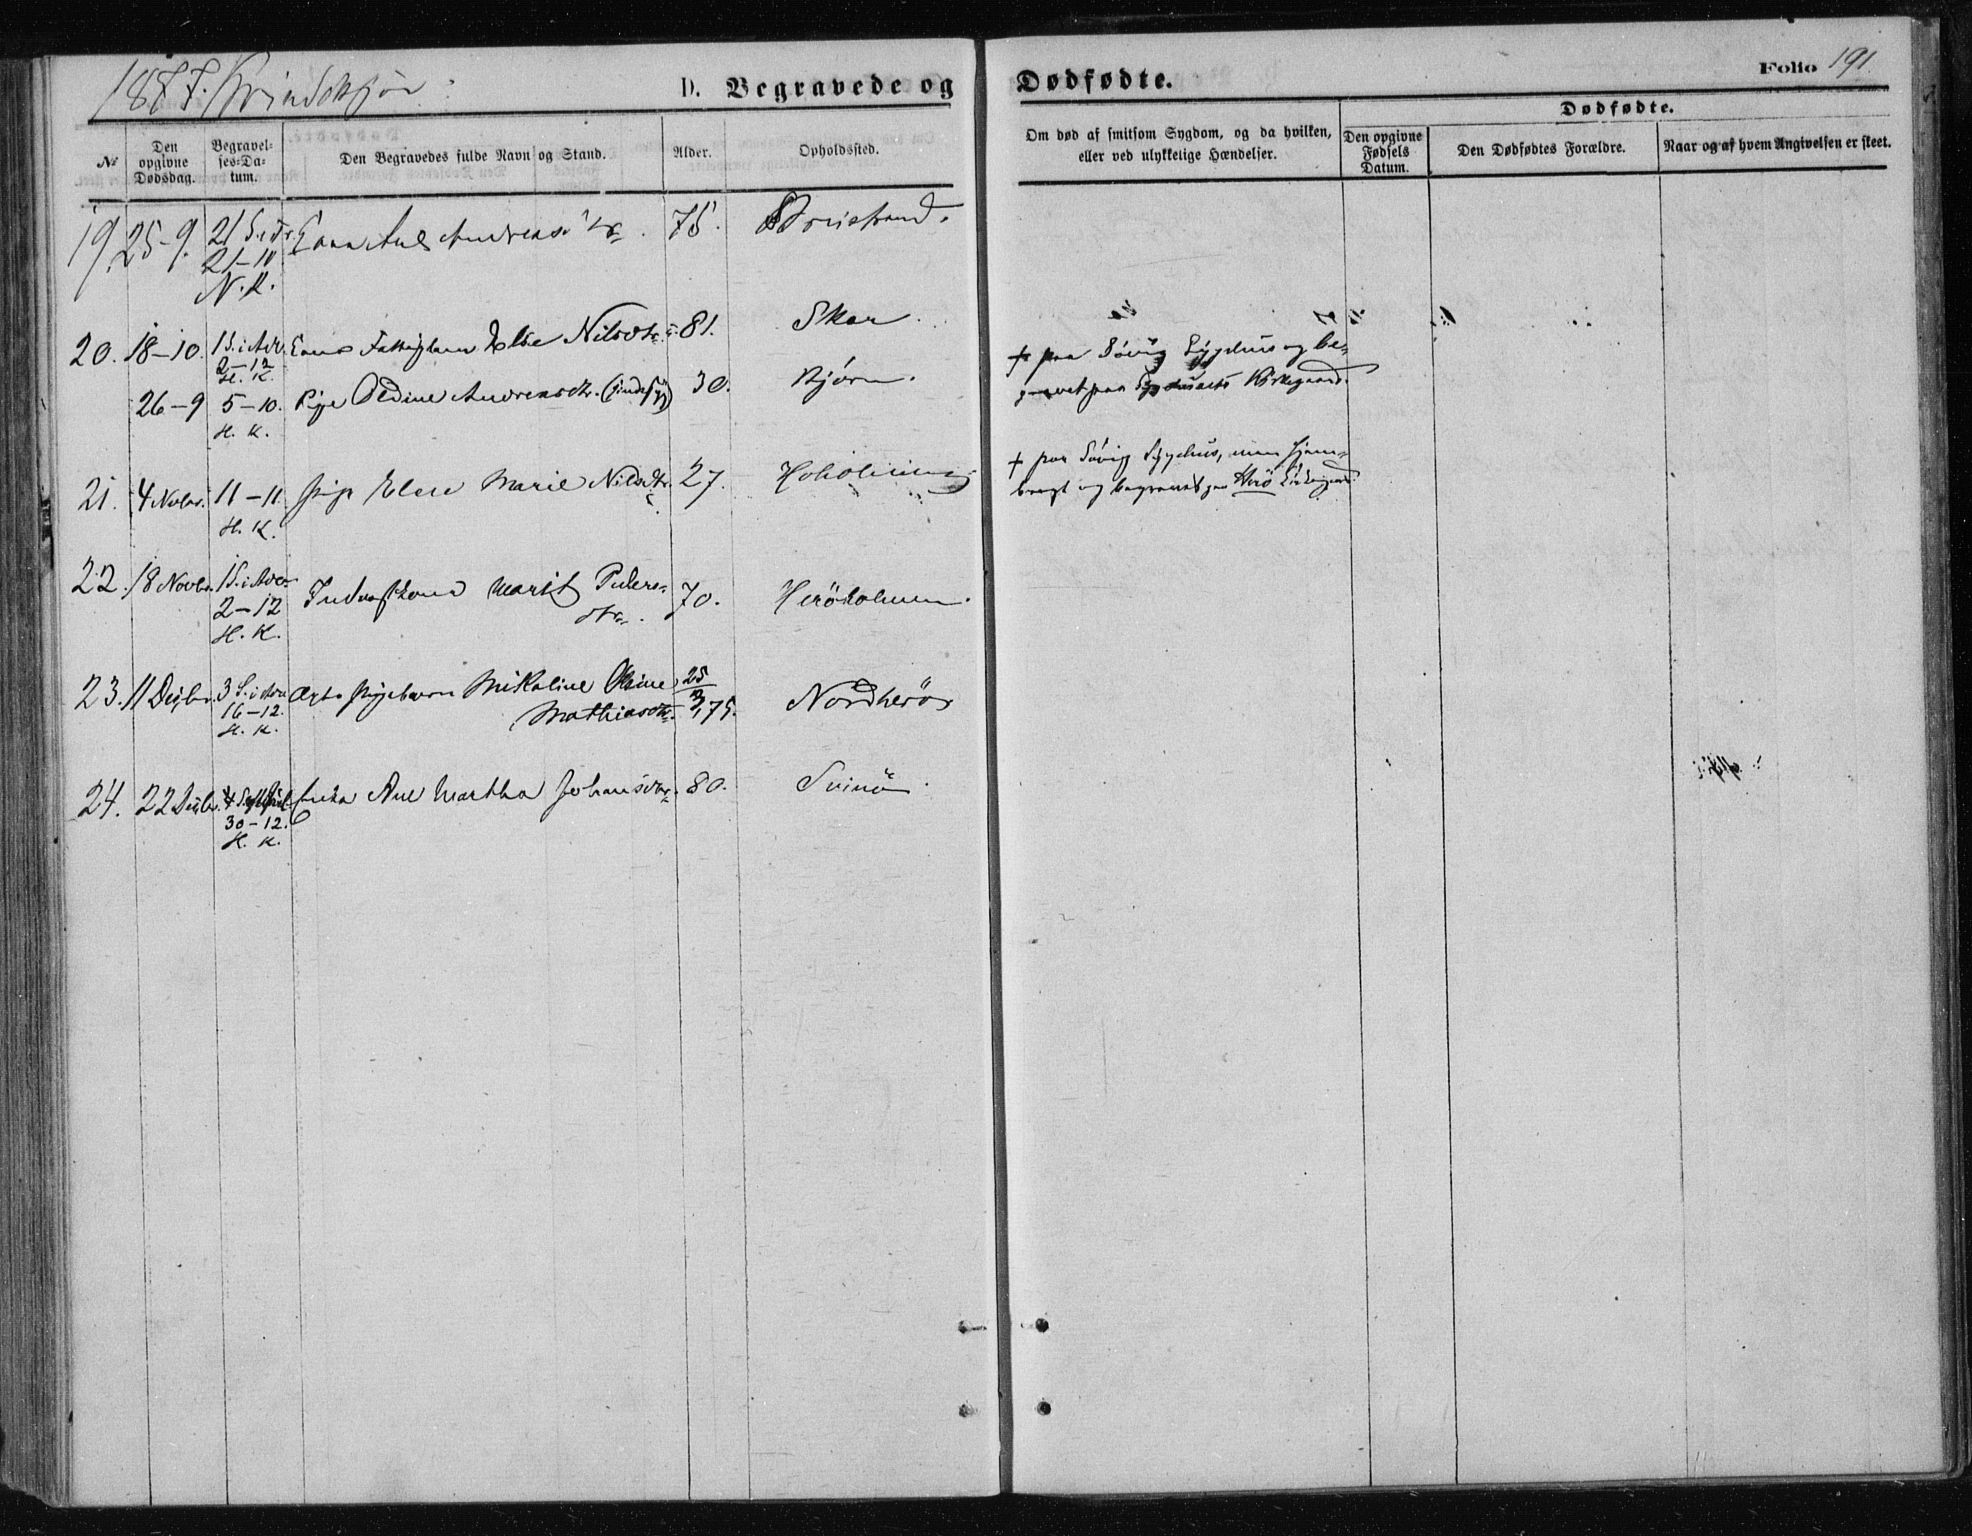 1877. Kvindekjøn
D. Begravede og Dødfødte.
Folio 191.
№
Den opgivne Dødsdag.
Begravelses-Datum.
Den Begravedes fulde Navn og Stand.
Alder.
Opholdssted.
Om død af smitsom Sygdom, og da hvilken, eller ved ulykkelige Hændelser.
Dødfødte.
Den opgivne Fødsels Datum.
Den Dødfødtes Forældre.
Naar og af hvem Angivelsen er skeet.
19. 25-9. 21 S. 75.
21-10
N. K.
20. 18-10. 1 S. i Adv. Nilsdtr. 81. Skar.
2-12
H. K.
26-9 5-10. Pige Oldine Andreasdtr. (sindssyg) 30. Bjørn.
H. K.
+ paa Søvig Sygehus og be-
gravet paa Sygehusets Kirkegaard.
21. 4 Novbr. 11-11. Pige Else Marie Nilsdtr. 27.
H. K.
+ paa Søvig Sygehus, men hjem-
bragt og begravet paa Herø Kirkegaard.
22. 18 Novbr. 1 S. i Adv. Marit Peders- 70. Herøholmen.
2-12 dtr.
H. K.
23. 11 Decbr. 3 S. i Adv. Ægte Pigebarn Mikaline Oline 25 Nordherø
16-12. Mathiasdtr. 75.
H. K.
24. 22 Decbr. Enke Ane Martha Johansdtr. 80. Svinø
30-12.
H. K.